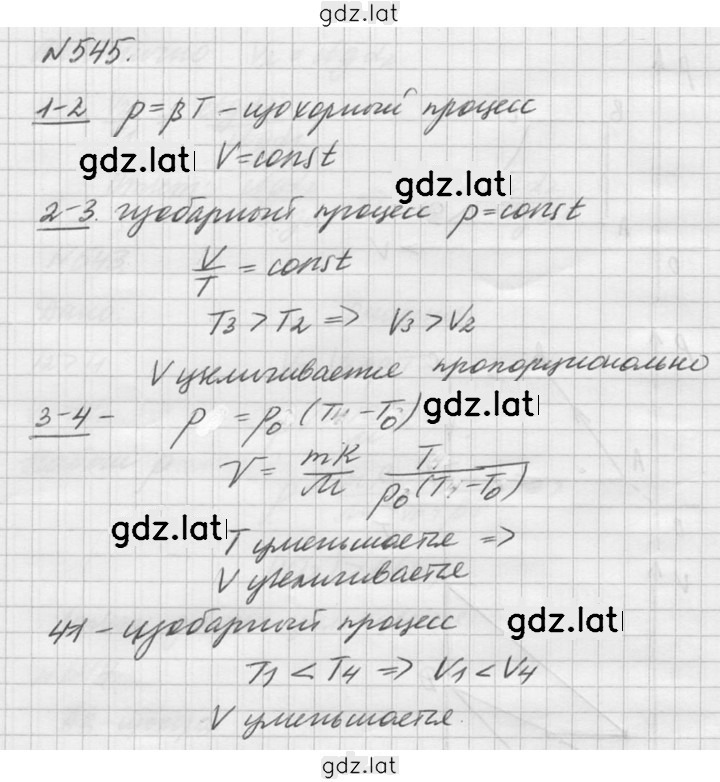 gdz.lat
N545.
1-2 p=βT – изохорный процесс
gdz.lat V=const
gdz.lat
2-3. изобарный процесс p=const
V/T = const
T3 > T2 => V3 > V2
V увеличивается пропорционально
3-4 – p = p0 (T4 – T0) gdz.lat
V = mR/M T4/p0(T4–T0)
gdz.lat T уменьшается =>
V увеличивается
41 – изобарный процесс gdz.lat
T1 < T4 => V1 < V4
V уменьшается.
gdz.lat